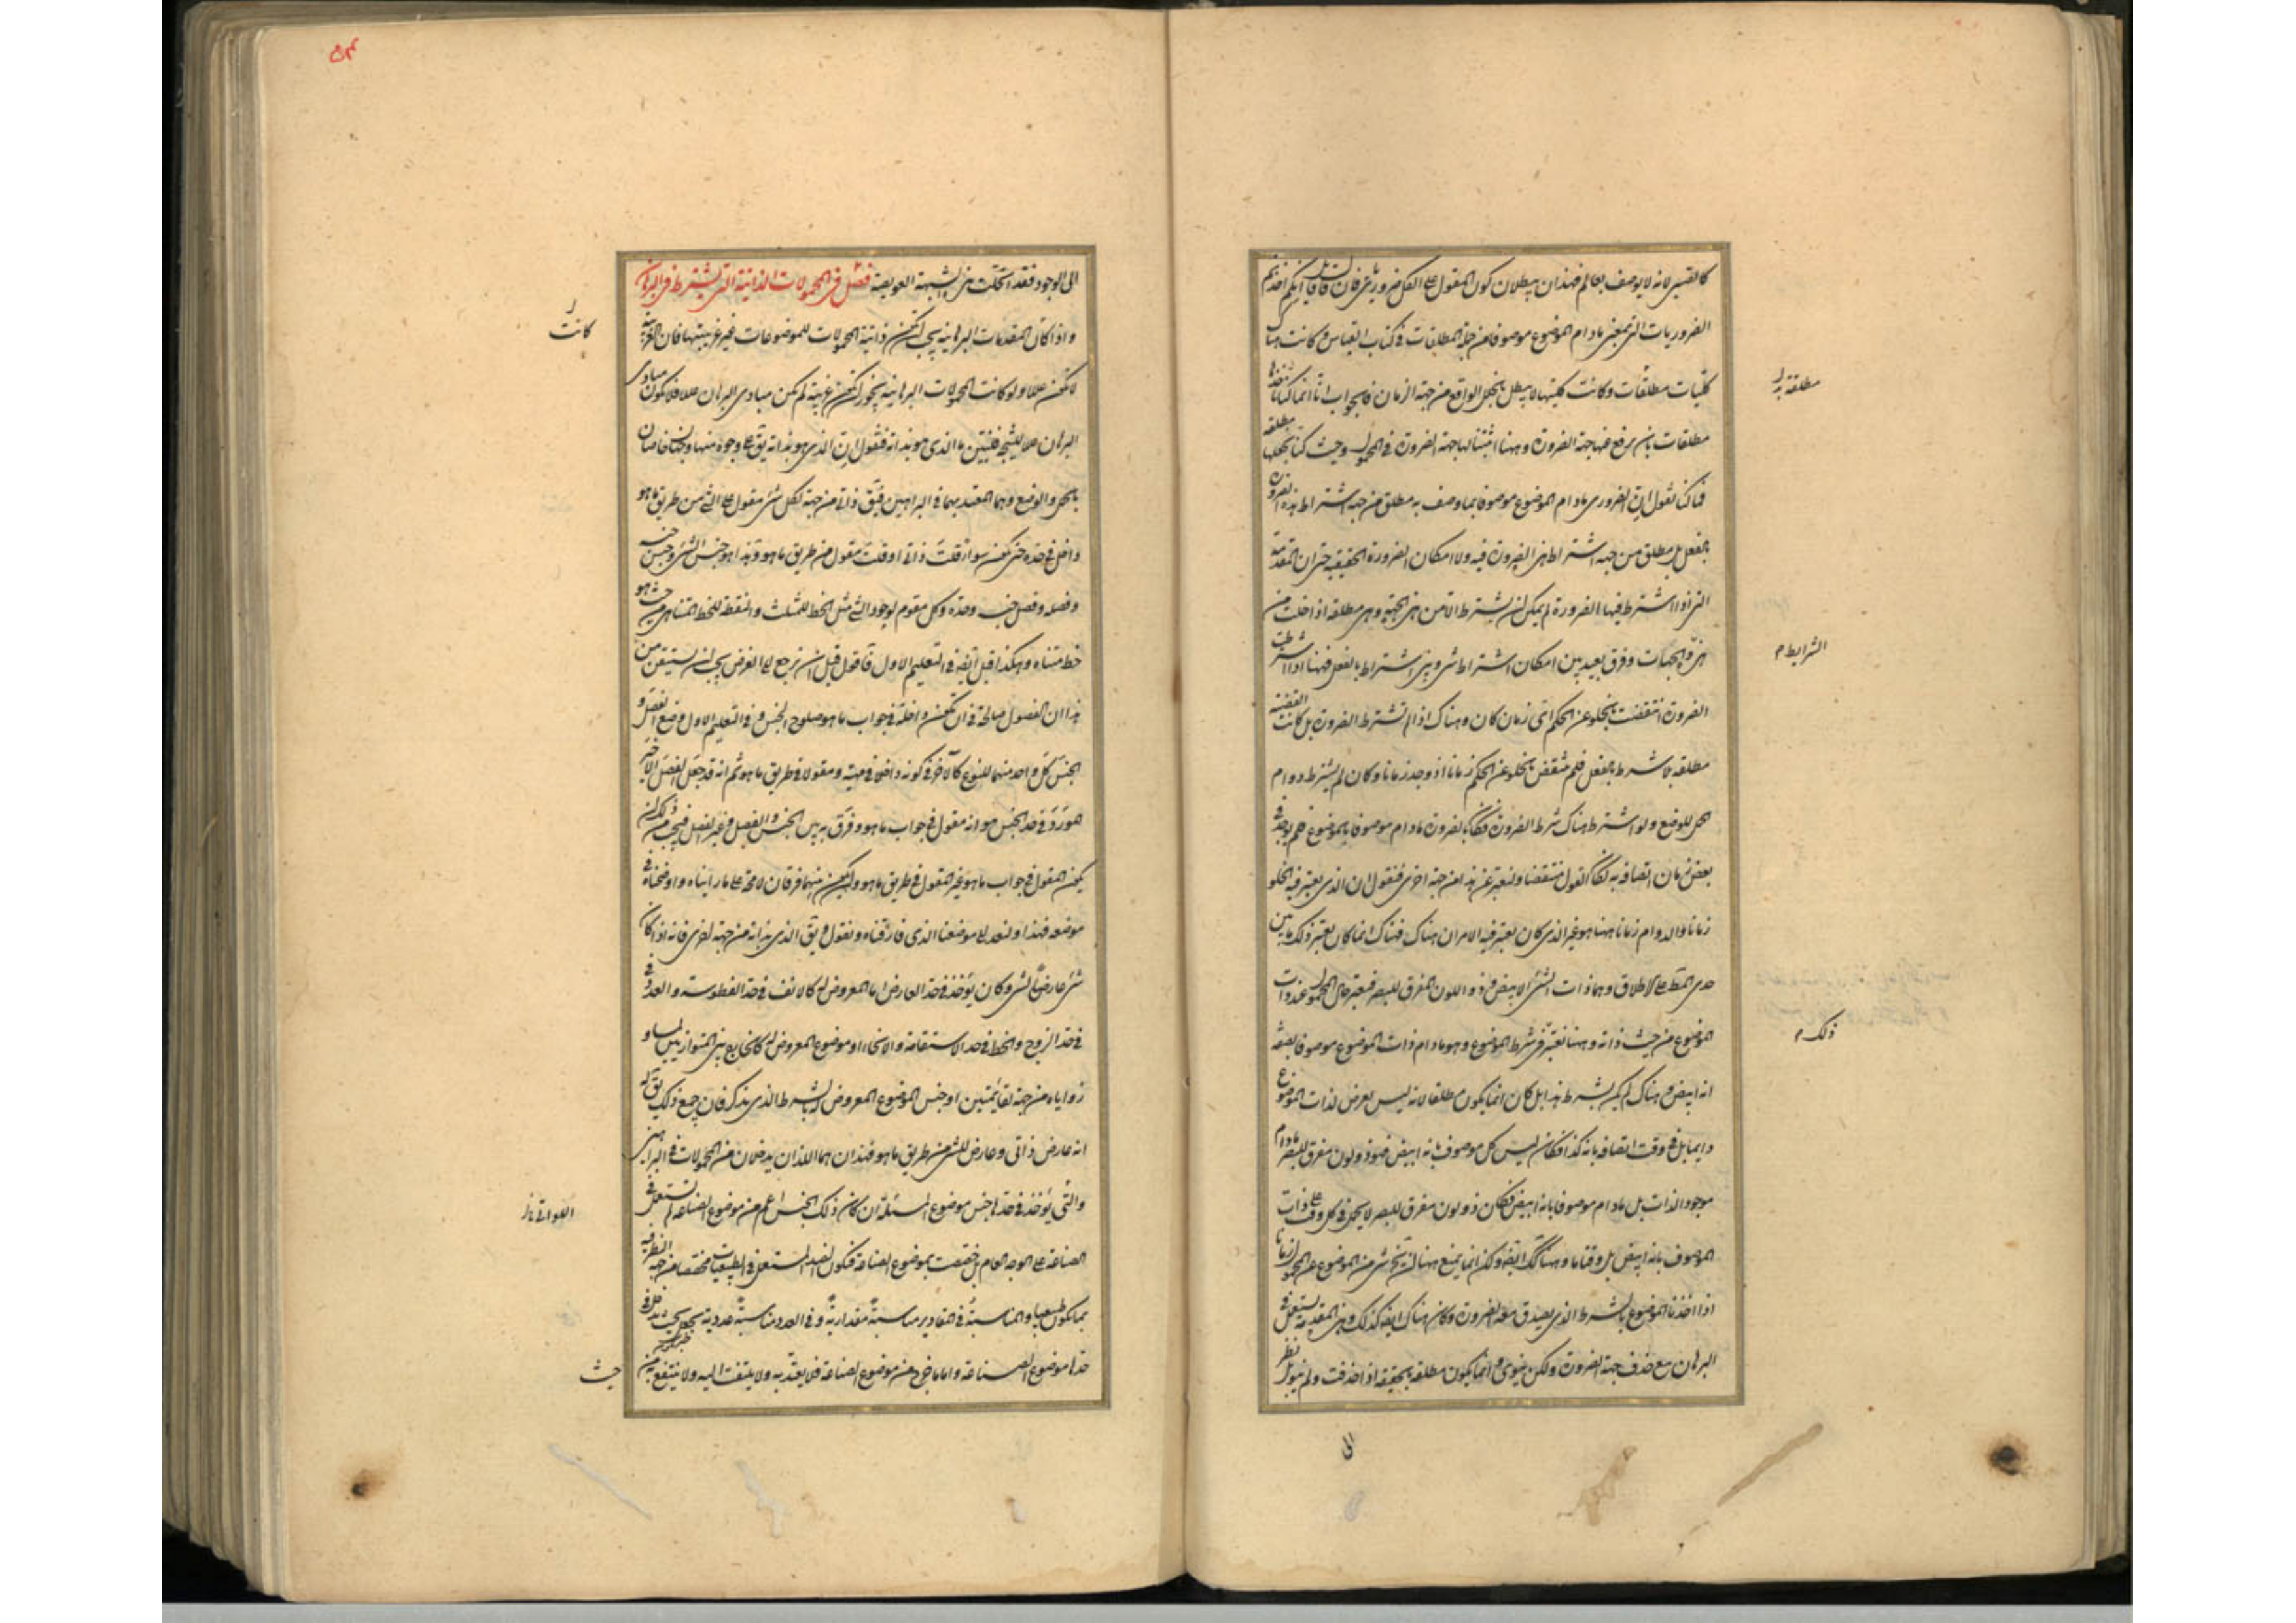 كالقسي لانه لا يوصف بعالم فهذان يبطلان كون المقول على الكل ضروريا فان قال قائل انكم اخذتم
الضروريات التي بمعنى مادام الموضوع موصوفا من جملة المطلقات في كتاب القياس وكانت هناك
كليات مطلقات وكانت كليتها لا يبطل بخلل الواقع من جهة الزمان فالجواب انا انما كنا
مطلقات بان نرفع عنها جهة الضرورة وههنا اثبتنا لها جهة الضرورة في المحمول وحيث كنا نجعلها
فانا كنا نقول ان الضروري مادام الموضوع موصوفا بما وصف به مطلق من جهة اشتراط هذه الضرورة
بالفعل بل مطلق من جهة اشتراط هذه الضرورة فيه ولا امكان الضرورة الحقيقية حتى ان المقدمة
التي اذا اشترط فيها الضرورة لم يمكن ان يشترط الا من هذه الجهة وهي مطلقة اذا خلت من
هذه الجهات وفرق بعيد بين امكان اشتراط شي وبين اشتراط بالفعل فههنا اذا اشترطت
الضرورة انتقضت بالخلو عن الحكم اي زمان كان وهناك اذا لم تشترط الضرورة بل كانت القضية
مطلقة بلا شرط بالفعل فلم تنتقض بالخلو عن الحكم زمانا اذ وجد زمانا وكان لم يشترط دوام
الحمل للوضع ولو اشترط هناك شرط الضرورة فكان بالضرورة مادام موصوفا بالموضوع ثم يوجد في
بعض زمان اتصافه به لكان القول منتقضا ولنعبر عن هذا من جهة اخرى فنقول ان الذي يعتبر فيه الخلو
زمانا والدوام زمانا ههنا هو غير الذي كان يعتبر فيه الامران هناك فهناك انما كان يعتبر ذلك بين
حدى المط على الاطلاق وهما ذات الشي الابيض وذو اللون المفرق للبصر فيعتبر حال المحمول عند ذات
الموضوع من حيث ذاته وههنا نعتبر في شرط الموضوع وهو مادام ذات الموضوع موصوفا بصفة
انه ابيض وهناك لم يكن يشترط هذا بل كان انما يكون مطلقا لانه ليس يعرض لذات الموضوع
دايما بل في وقت اتصافه بانه كذا فكان ليس كل موصوف بانه ابيض فهو ذو لون مفرق للبصر مادام
موجود الذات بل مادام موصوفا بانه ابيض فكان ذو لون مفرق للبصر لا يحمل في كل وقت على ذات
الموصوف بانه ابيض بل وقتا ما وههنا كك ايضا ولكن انما يمنع ههنا ان يخلو شي من الموضوع عن المحمول زمانا
اذا اخذنا الموضوع بالشرط الذي يصدق معه الضرورة وكان هناك ايضا كذلك وهذه المقدمة يستعمل في
البرهان مع حذف جهة الضرورة ولكن ينوى وانما يكون مطلقة بالحقيقة اذا حذفت ولم ينو بل نظر
الى
مطلقة
الشرايط م
ذلك م
الى الوجود فقد انحلت هذه الشبهة العويصة فصل في المحمولات الذاتية التي يشترط في البرهان
واذا كان المقدمات البرهانية يجب ان تكون ذاتية المحمولات للموضوعات غير غريبتها فان الغريبة
لا تكون عللا ولو كانت المحمولات البرهانية يجوز ان تكون غريبة لم تكن مبادى البرهان عللا فلا يكون مبادى
البرهان عللا للنتيجة فلنبين ما الذي هو بذاته فنقول ان الذي هو بذاته يق على وجوه منها وجهان خاصان
بالحمل والوضع وهما المعتد بهما في البراهين فيق ذاتي من جهة لكل شي مقول على الشي من طريق ما هو
داخل في حده حتى يكون سواء قلت ذاتي او قلت مقول من طريق ما هو وهذا هو جنس الشي وجنس جنسه
وفصله وفصل جنسه وحده وكل مقوم لوجود الشي مثل الخط للمثلث والنقطة للخط المتناهي من حيث هو
خط متناه وهكذا قيل ايضا في التعليم الاول فاقول قبل ان نرجع الى الغرض يجب ان يستيقن من
هذا ان الفصول صالحة في ان تكون داخلة في جواب ما هو صلوح الجنس وفي التعليم الاول وضع الفصل و
الجنس كل واحد منهما للنوع كالآخر في كونه داخلا في مهيته ومقولا في طريق ما هو ثم انه قد جعل الفصل الاخير
المورد في حد الجنس هو انه مقول في جواب ما هو وفرق به بين الجنس والفصل وغير الفصل فيجب من ذلك ان
يكون المقول في جواب ما هو غير المقول في طريق ما هو وان يكون بينهما فرقان لا محة على ما راينا واوضحناه في
موضعه فهذا ولنعد الى موضعنا الذي فارقناه ونقول ويق الذي بذاته من جهة اخرى فانه اذا كان
شي عارضا لشي وكان يؤخذ في حد العارض اما المعروض له كالانف في حد الفطوسة والعدد في
في حد الزوج والخط في حد الاستقامة والانحناء او موضوع المعروض له كالخارج من المتوازيين لمساو
زواياه من جهة لقائمتين او جنس الموضوع المعروض له بالشرط الذي يذكر فان جميع ذلك يق له
انه عارض ذاتي وعارض للشي من طريق ما هو فهذان هما اللذان يدخلان من المحمولات في البراهين
والتي يؤخذ في حدها جنس موضوع المسئلة ان كان ذلك الجنس اعم من موضوع الصناعة لم تستعمل في
الصناعة على الوجه العام بل خصصت بموضوع الصناعة فتكون الضد المستعمل في الطبيعيات مخصصا من جهة النظر فيه
بما يكون طبيعيا والمناسبة في المقادير مناسبة مقدارية وفي العدد مناسبة عددية يجب ان يدخل في
حدها موضوع الصناعة واما ما خرج عن موضوع الصناعة فلا يعتد به ولا يلتفت اليه ولا ينتفع به من
كانت
حيث